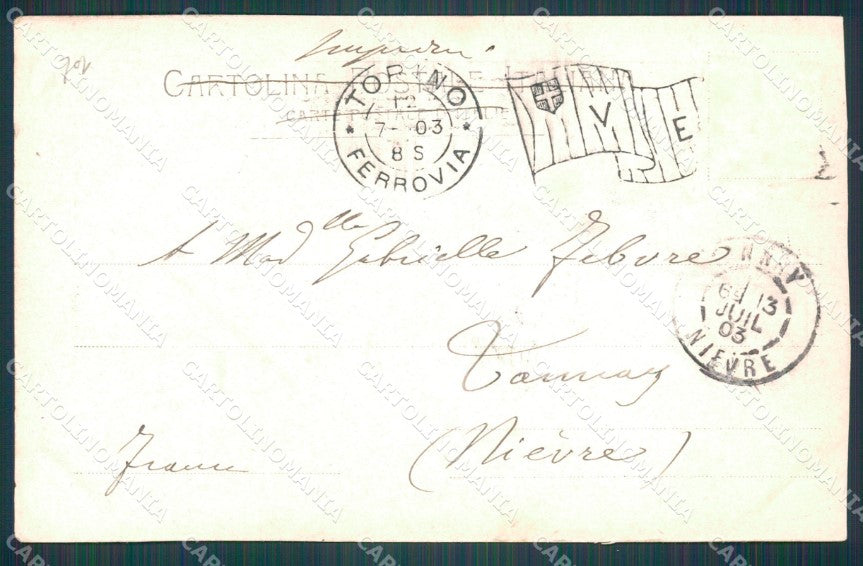 Imprimé
CARTOLINA POSTALE ITALIANA
CARTE POSTALE
TORINO
12
7- 03
8 S
* FERROVIA *
V E
A Mad^lle Gabrielle Febvre
Tannay
(Nièvre)
France
TANNAY
13
JUIL
03
NIEVRE
CARTOLINOMANIA